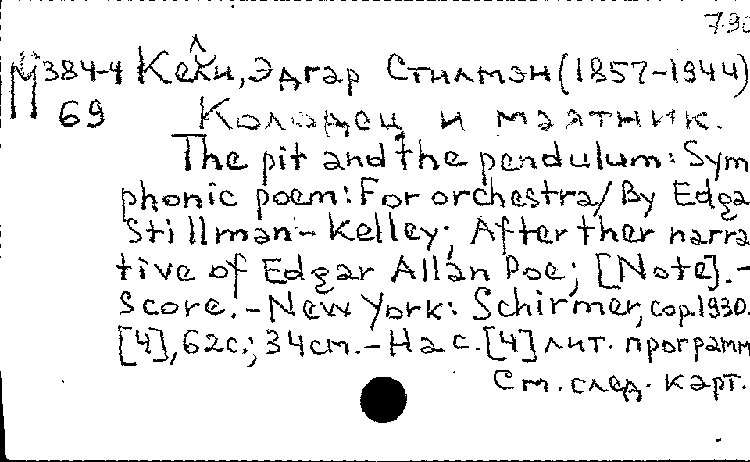 790
М384-4 Кели, Эдгар Стилмэн (1857-1944)
69 Колодец и маятник.
The pit and the pendulum: Sym
phonic poem: For orchestra / By Edga
Stillman-Kelley; After ther narra
tive of Edgar Allan Poe; [Note]. -
Score. - New York: Schirmer, cop. 1930.
[4], 62 с.; 34 см. - На с. [4] лит. программ
См. след. карт.